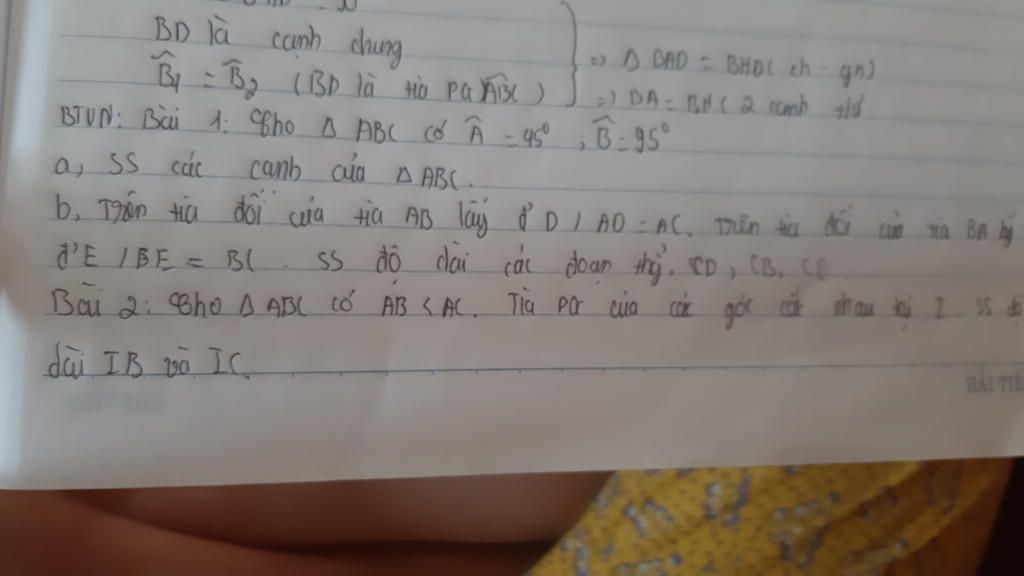 BD là cạnh chung
B̂1 = B̂2 (BD là tia pg ABC)
=> Δ BAD = BHD ( ch - gn)
=> DA = BH ( 2 canh tư.
BTVN: Bài 1: Cho Δ ABC có Â = 45° ; B̂ = 95°
a, SS các cạnh của Δ ABC.
b, Trên tia đối của tia AB lấy đ' D / AD = AC. Trên tia đối của tia BA lấy
đ' E / BE = BC. SS độ dài các đoạn thg?. CD, CB, CE
Bài 2: Cho Δ ABC có AB < AC. Tia pg của các góc cắt nhau tại I SS độ
dài IB và IC.
HẢI TIẾ